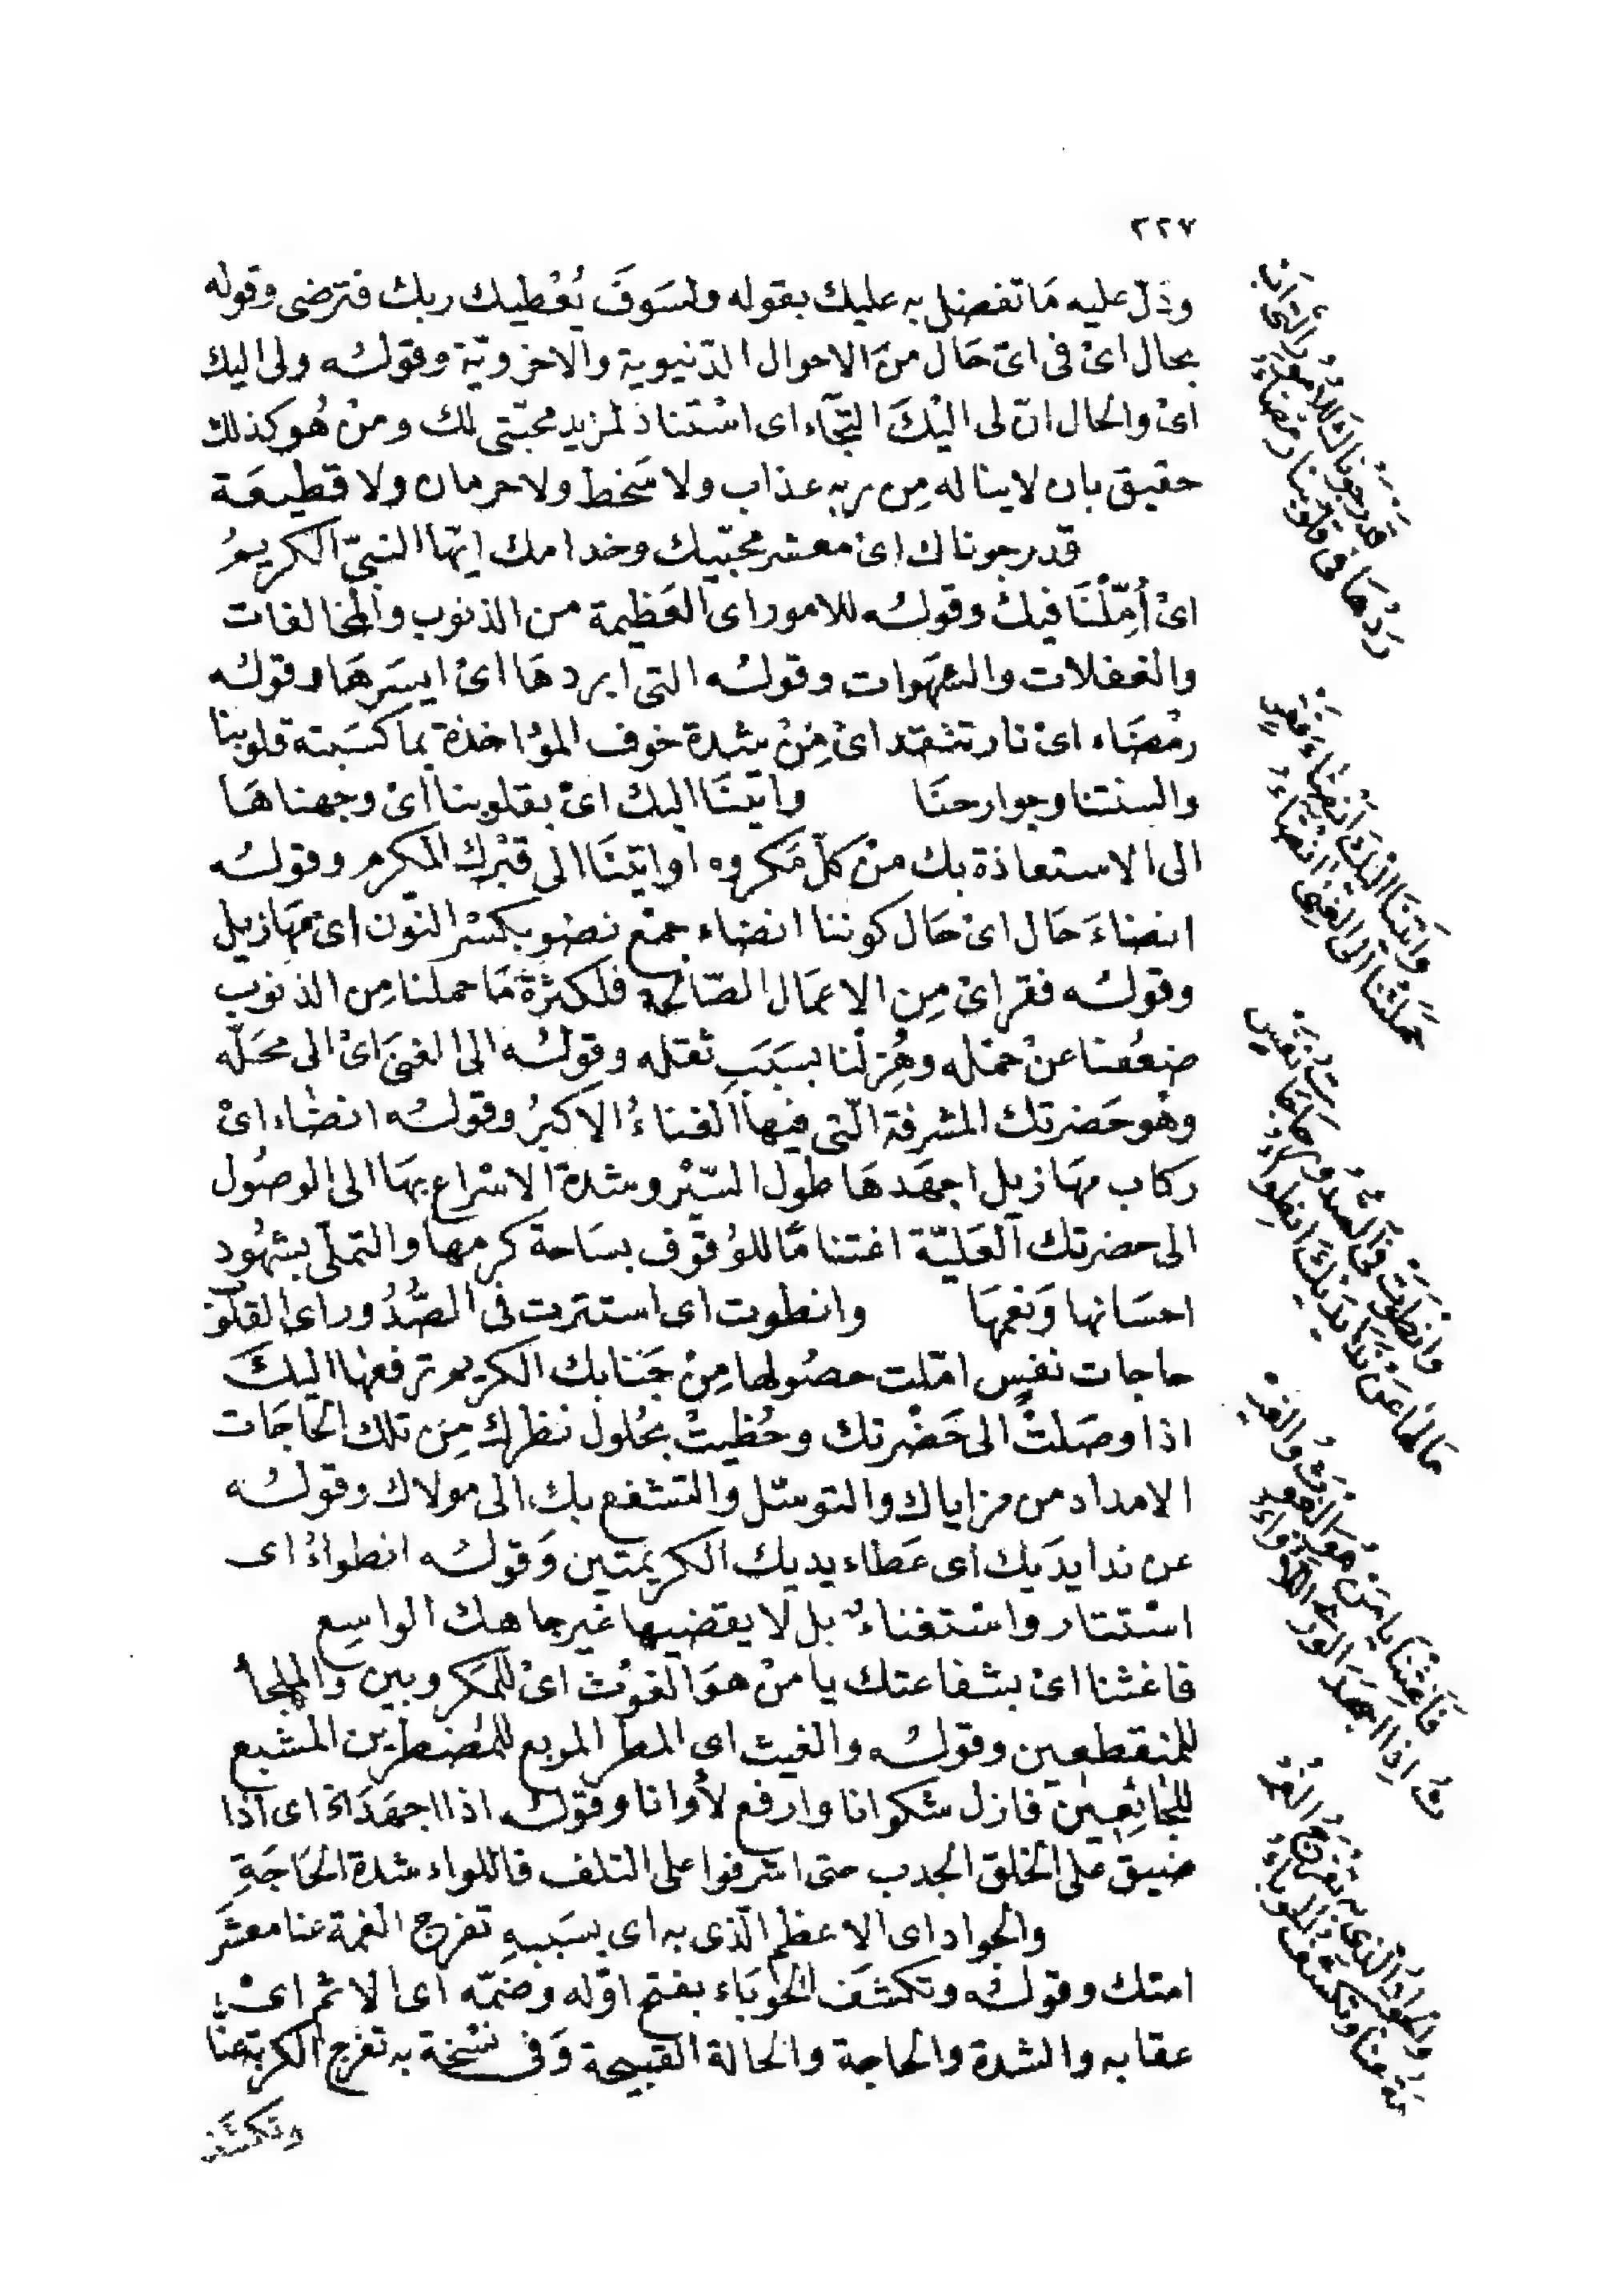 ٢٢٧
ودَلّ عليه مَا تفضل به عليك بقوله ولسَوفَ يُعْطيك ربك فترضى وقوله
بحال اىْ فى اىّ حَال منَ الاحوال الدّنيوية والاخرويّة وقولُه ولى اليك
اىْ والحال انّ لى اليْكَ التجآء اى اسْتنا د لمزيد محبّتى لك ومنْ هُو كذلك
حقيق بان لا يناله مِن ربه عذاب ولا سَخط ولا حرمان ولا قطيعَة
قد رجوناك اىْ معشر محبّيك وخدامك ايّها النبىّ الكريمُ
اىْ أمّلْنَا فيك وقولُه للامور اى العَظيمة من الذنوب والمخالفات
والغفلات والشهَوات وقولُه التى ابردهَا اىْ ايسَرهَا وقولُه
رمْضَاء اىْ نار تتّقد اىْ مِنْ شدة خوف المؤاخذة بما كسَبته قلوبنا
والسنتنا وجوارحنَا وأتيْنَا اليك اىْ بقلوبنا اىْ وجهناهَا
الى الاستعاذة بك منْ كلّ مَكروه او اتيْنَا الى قبْرك المكرم وقولُه
انضاءَ حَال اىْ حَال كوننا انضاء جمْع نضو بكسْر النّون اىْ مهَازيل
وقولُه فقر اىْ مِن الاعمَال الصّالحة فلكثرة مَا حملنا مِن الذنوب
ضعُفنا عنْ حمْله وهُزلْنا بسَبَبِ ثقله وقولُه الى الغنىَ اىْ الى محَلّه
وهُو حَضرتك المشرفة الّتى فيها الغناءُ الاكبرُ وقولُه انضاء اىْ
ركاب مهَازيل اجهَدهَا طول السّيْر وشدة الاسْراع بهَا الى الوصُول
الى حضرتك العَليّة اغتنامًا للوُقوف بسَاحة كرمها والتملّى بشهُود
احسَانها وَنعمهَا وانطوت اى استترت فى الصُّدُور اى القلوب
حاجات نفسٍ امّلت حصُولها مِنْ جَنابك الكريم ترفعها اليكَ
اذا وصَلتْ الى حَضْرتك وحُظيتْ بحُلول نظرك مِن تلك الحَاجَات
الامداد من مزاياك والتوسّل والتشفع بك الى مولاك وقولُه
عن ندا يدَيك اى عَطاء يديك الكريمَتين وَقولُه انطواءُ اى
اسْتتار واسْتغناءٌ بل لا يقضيها غير جاهك الواسِع
فاغثنا اىْ بشفاعتك يا منْ هوَ الغوْث اىْ للمَكروبين والملجأ
للمنقطعين وقولُه والغيث اى المطر المربع للمُضطرين المشبع
للجَائِعِين فازل شكوانا وارفع لأوانا وقولُه اذا اجهَدَ الخ اى اذا
ضيق على الخلق الجدب حتى اشرفوا على التلف فاللواء شدة الحَاجَةِ
والجواد اى الاعظم الّذى به اى بسَببهِ تفرج الغمة عنا معشَر
امتك وقولُه وتكشَف الحوْبَاء بفتح اوّله وضمّه اى الاثم اىْ
عقابه والشدة والحاجة والحالة القبيحة وَفى نسْخة به تفرج الكربة عنّا
وتكشَف
قَدْ رَجَوْنَاكَ لِلأُمُورِ الَّتِى أَبْ
رَدُهَا فِى قُلُوبِنَا رَمْضَاءُ
وَأَتَيْنَا إِلَيْكَ أَنْضَاءَ فَقْرٍ
حَمَلَتْنَا إِلَى الغِنَى أَنْضَاءُ
وَانْطَوَتْ فِى الصُّدُورِ حَاجَاتُ نَفْسٍ
مَا لَهَا عَنْ نَدَا يَدَيْكَ انْطِوَاءُ
فَأَغِثْنَا يَا مَنْ هُوَ الْغَوْثُ وَالْغَيْ
ثُ إِذَا أَجْهَدَ الْوَرَى اللَّأْوَاءُ
وَالْجَوَادُ الَّذِى بِهِ تُفْرَجُ الْغُمَّ
ةُ عَنَّا وَتُكْشَفُ الْحَوْبَاءُ